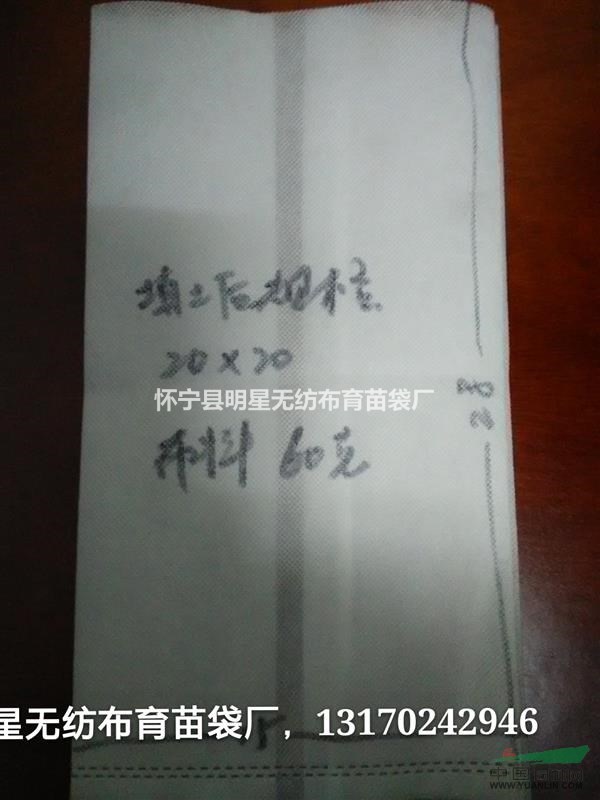 填土后规格
20×20
怀宁县明星无纺布育苗袋厂
28
布料 60克
星无纺布育苗袋厂，13170242946
15
WWW.YUANLIN.COM